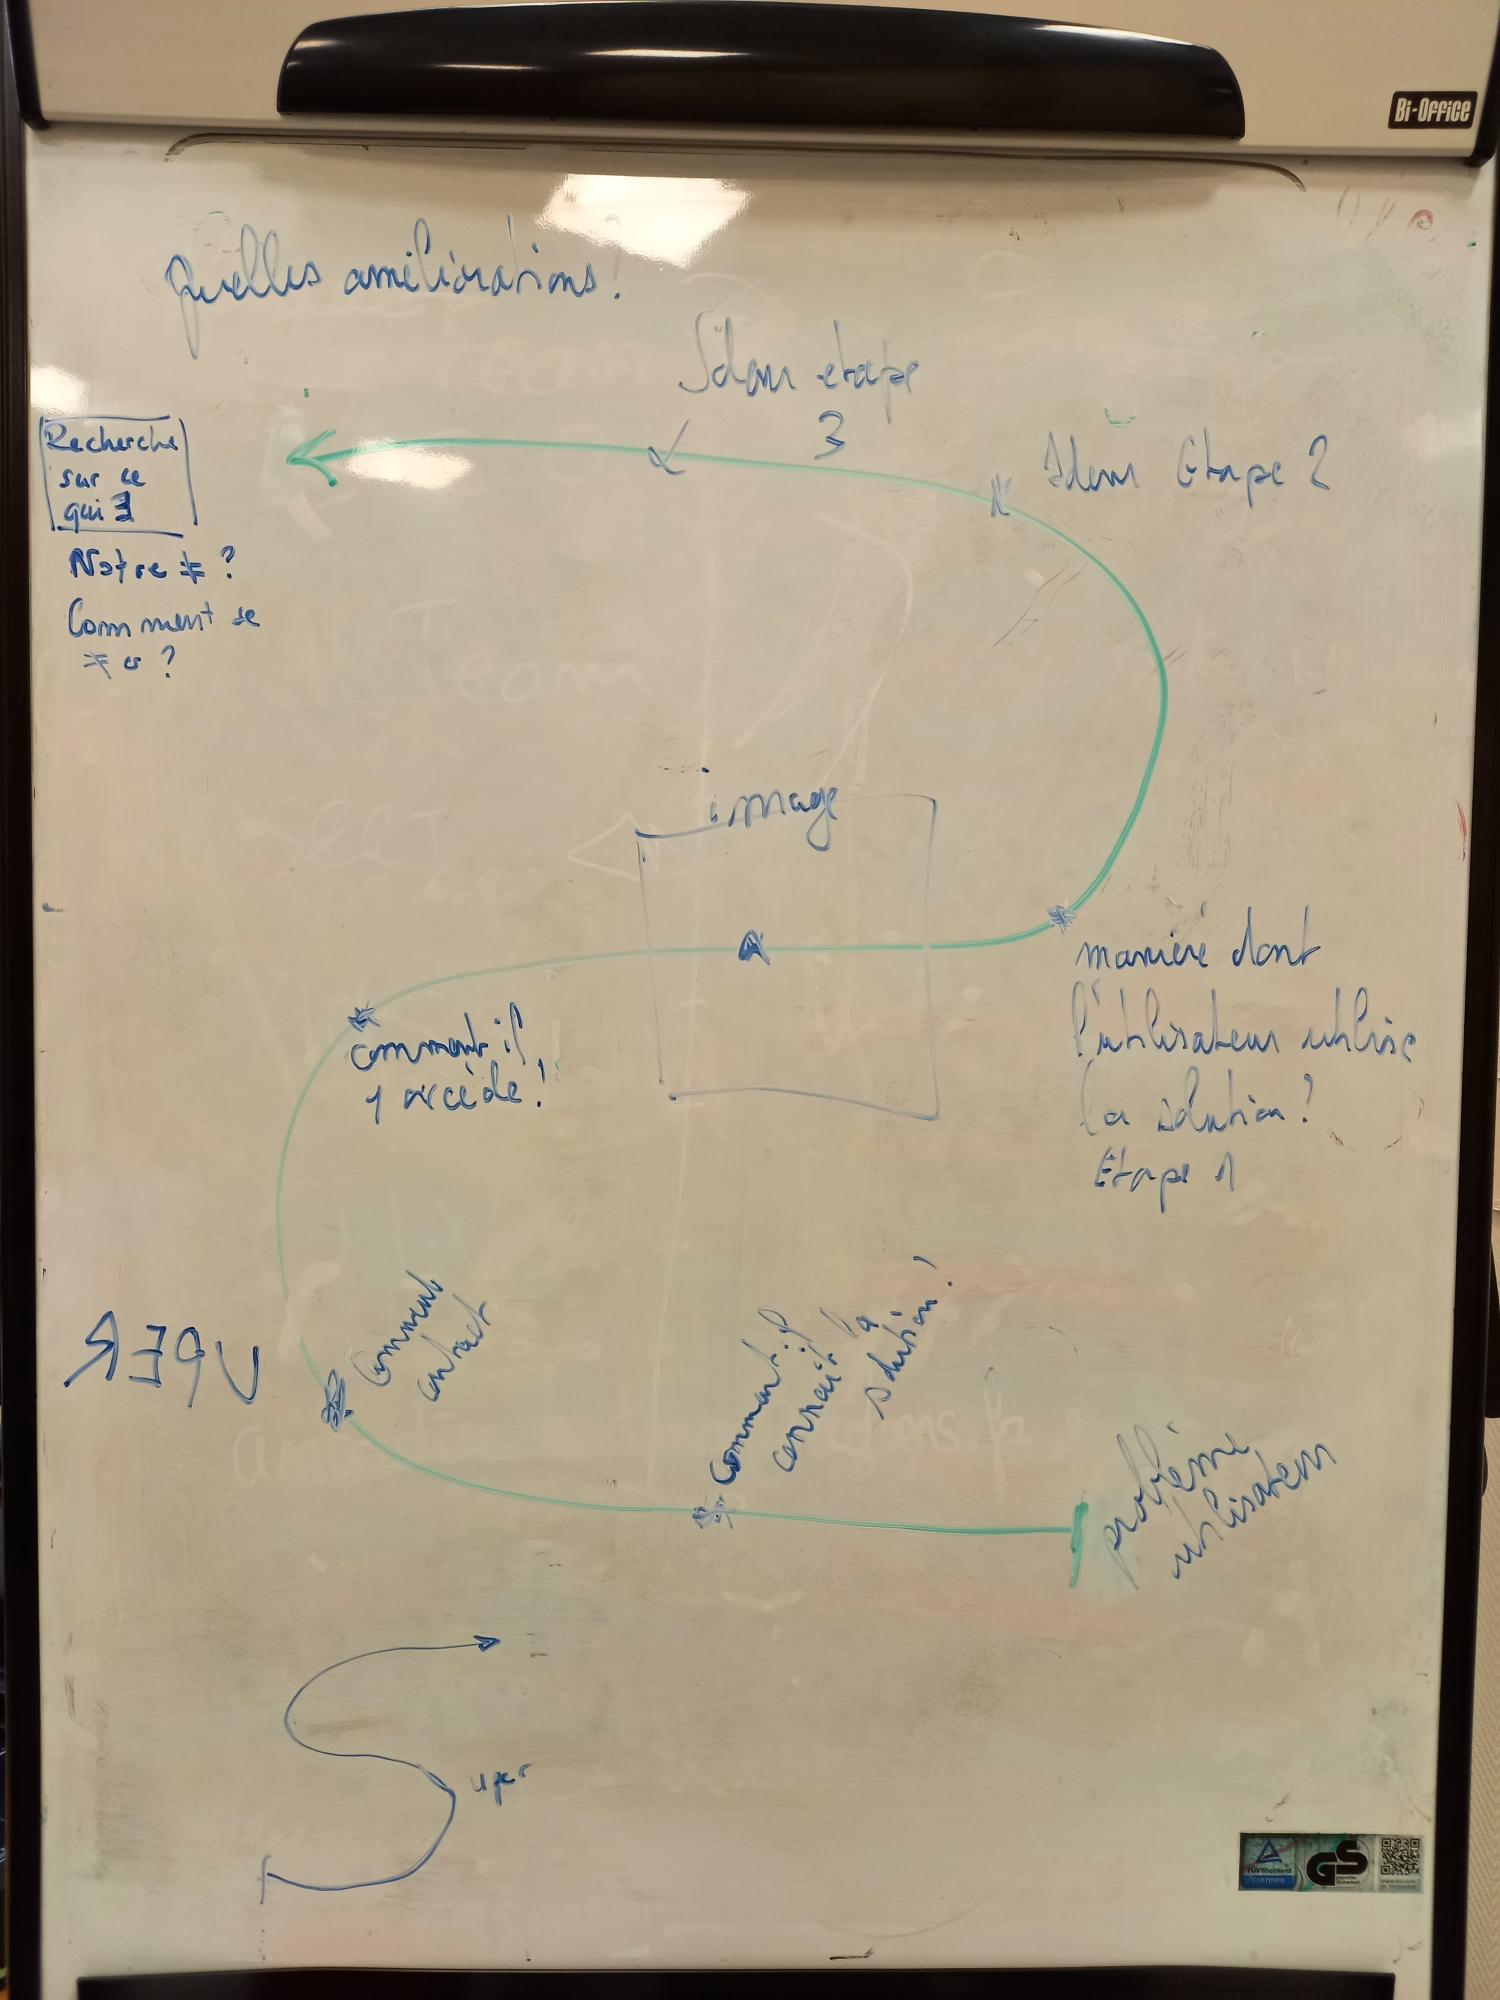 Bi-Office
Quelles améliorations?
Idem etape
3
Idem Etape 2
Recherche
sur ce
qui ∃
Notre ≠ ?
Comment se
≠ er ?
image
manière dont
l'utilisateur utilise
la solution?
Etape 1
comment il
y accède!
Team
Comment
contact
Comment il
connait la
solution!
UPER
problème
utilisateur
uper
TÜVRheinland
CERTIFIED
GS